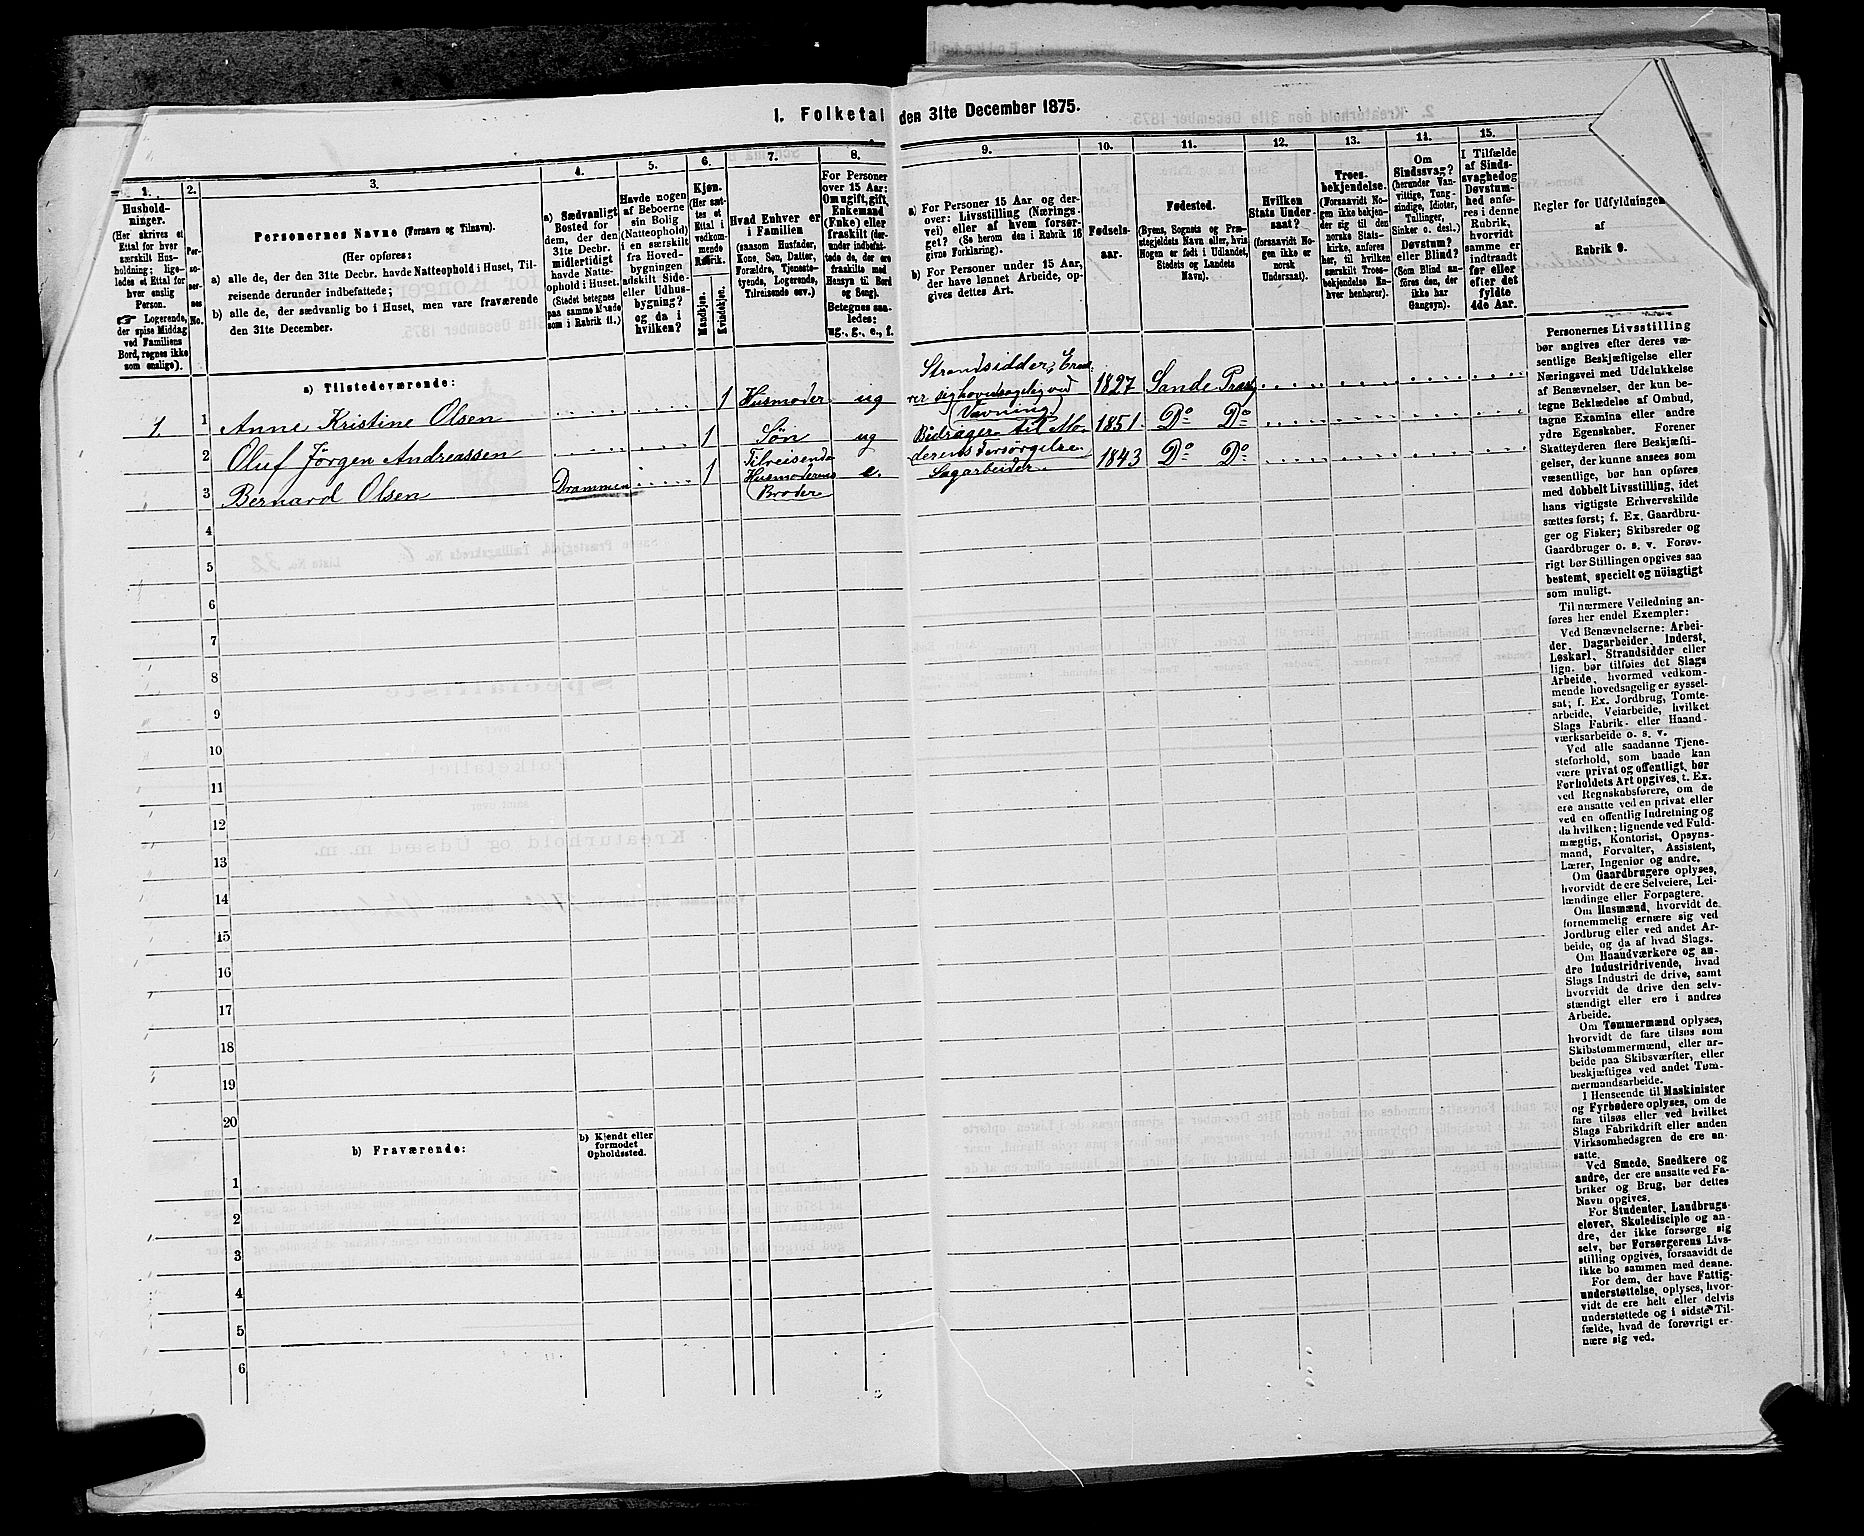 1. Folketal den 31te December 1875.
1.
Hushold-
ninger.
(Her skrives et
Ettal for hver
særskilt Hus-
holdning; lige-
ledes et Ettal for
hver enslig
Person.
☞ Logerende,
der spise Middag
ved Familiens
Bord, regnes ikke
som enslige).
2.
Per-
so-
ner-
nes
No.
3.
Personernes Navne (Fornavn og Tilnavn).
(Her opføres:
a) alle de, der den 31te Decbr. havde Natteophold i Huset, Til-
reisende derunder indbefattede;
b) alle de, der sædvanlig bo i Huset, men vare fraværende
den 31te December.
4.
a) Sædvanligt
Bosted for
dem, der den
31te Decbr.
midlertidigt
havde Natte-
ophold i Huset.
(Stedet betegnes
paa samme Maade
som i Rubrik 11.)
5.
Havde nogen
af Beboerne
sin Bolig
(Natteophold)
i en særskilt
fra Hoved-
bygningen
adskilt Side-
eller Udhus-
bygning?
og da i
hvilken?
6.
Kjøn.
(Her sæt-
tes et
Ettal i
vedkom-
mende
Rubrik.
Mandkjøn.
Kvindekjøn.
7.
Hvad Enhver er
i Familien
(saasom Husfader,
Kone, Søn, Datter,
Forældre, Tjeneste-
tyende, Logerende,
Tilreisende osv.)
8.
For Personer
over 15 Aar:
Om ugift, gift,
Enkemand
(Enke) eller
fraskilt (der-
under indbefat-
tede de, der ere
fraskilte med
Hensyn til Bord
og Seng).
Betegnes saa-
ledes:
ug., g., e., f.
9.
a) For Personer 15 Aar og der-
over: Livsstilling (Nærings-
vei) eller af hvem forsør-
get? (Se herom den i Rubrik 16
givne Forklaring).
b) For Personer under 15 Aar,
der have lønnet Arbeide, op-
gives dettes Art.
10.
Fødsels-
aar.
11.
Fødested.
(Byens, Sognets og Præ-
stegjeldets Navn eller, hvis
Nogen er født i Udlandet,
Stedets og Landets
Navn).
12.
Hvilken
Stats Under-
saat?
(forsaavidt No-
gen ikke er
norsk
Undersaat).
13.
Troes-
bekjendelse.
(Forsaavidt No-
gen ikke bekjen-
der sig til den
norske Stats-
kirke, anføres
her, til hvilken
særskilt Troes-
bekjendelse En-
hver henhører).
14.
Om
Sindssvag?
(herunder Van-
vittige, Tung-
sindige, Idioter,
Tullinger,
Sinker o. desl.)
Døvstum?
eller Blind?
(Som Blind an-
føres den, der
ikke har
Gangsyn).
15.
I Tilfælde
af Sinds-
svaghed og
Døvstum-
hed anfø-
res i denne
Rubrik,
hvorvidt
samme er
indtraadt
før eller
efter det
fyldte
4de Aar.
Regler for Udfyldningen
af
Rubrik 9.
a) Tilstedeværende:
1. 1 Anne Kristine Olsen 1 Husmoder ug Strandsidder, Ernæ-
rer sig hovedsagelig ved
Vævning 1827 Sande Præst
2 Oluf Jørgen Andreassen 1 Søn ug Bidrager til Mo-
derens Forsørgelse 1851 Do Do
3 Bernard Olsen Drammen 1 Tilreisende
Husmoderens
Broder e. Sagarbeider 1843 Do Do
4
5
6
7
8
9
10
11
12
13
14
15
16
17
18
19
20
b) Fraværende:
b) Kjendt eller
formodet
Opholdssted.
1
2
3
4
5
6
Personernes Livsstilling
bør angives efter deres væ-
sentlige Beskjæftigelse eller
Næringsvei med Udelukkelse
af Benævnelser, der kun be-
tegne Beklædelse af Ombud,
tagne Examina eller andre
ydre Egenskaber. Forener
Skatteyderen flere Beskjæfti-
gelser, der kunne ansees som
væsentlige, bør han opføres
med dobbelt Livsstilling, idet
hans vigtigste Erhvervskilde
sættes først; f. Ex. Gaardbru-
ger og Fisker; Skibsreder og
Gaardbruger o. s. v. Forøv-
rigt bør Stillingen opgives saa
bestemt, specielt og nöiagtigt
som muligt.
Til nærmere Veiledning an-
føres her endel Exempler:
Ved Benævnelserne: Arbei-
der, Dagarbeider, Inderst,
Løskarl, Strandsidder eller
lign. bør tilføies det Slags
Arbeide, hvormed vedkom-
mende hovedsagelig er syssel-
sat; f. Ex. Jordbrug, Tomte-
arbeide, Veiarbeide, hvilket
Slags Fabrik- eller Haand-
værksarbeide o. s. v.
Ved alle saadanne Tjene-
steforhold, som baade kan
være privat og offentligt, bør
Forholdets Art opgives, t. Ex.
ved Regnskabsførere, om de
ere ansatte ved en privat eller
ved en offentlig Indretning og
da hvilken; lignende ved Fuld-
mægtig, Kontorist, Opsyns-
mand, Forvalter, Assistent,
Lærer, Ingeniør og andre.
Om Gaardbrugere oplyses,
hvorvidt de ere Selveiere, Lei-
lændinge eller Forpagtere.
Om Husmænd, hvorvidt de
fornemmelig ernære sig ved
Jordbrug eller ved andet Ar-
beide, og da af hvad Slags.
Om Haandværkere og an-
dre Industridrivende, hvad
Slags Industri de drive, samt
hvorvidt de drive den selv-
stændigt eller ere i andres
Arbeide.
Om Tømmermænd oplyses,
hvorvidt de fare tilsøs som
Skibstømmermænd, eller ar-
beide paa Skibsværfter, eller
beskjæftiges ved andet Tøm-
mermandsarbeide.
I Henseende til Maskinister
og Fyrbødere oplyses, om de
fare tilsøs eller ved hvilket
Slags Fabrikdrift eller anden
Virksomhedsgren de ere an-
satte.
Ved Smede, Snedkere og
andre, der ere ansatte ved Fa-
briker og Brug, bør dettes
Navn opgives.
For Studenter, Landbrugs-
elever, Skoledisciple og an-
dre, der ikke forsørge sig
selv, bør Forsørgerens Livs-
stilling opgives, forsaavidt de
ikke bo sammen med denne.
For dem, der have Fattig-
understøttelse, oplyses, hvor-
vidt de ere helt eller delvis
understøttede og i sidste Til-
fælde, hvad de forøvrigt er-
nære sig ved.